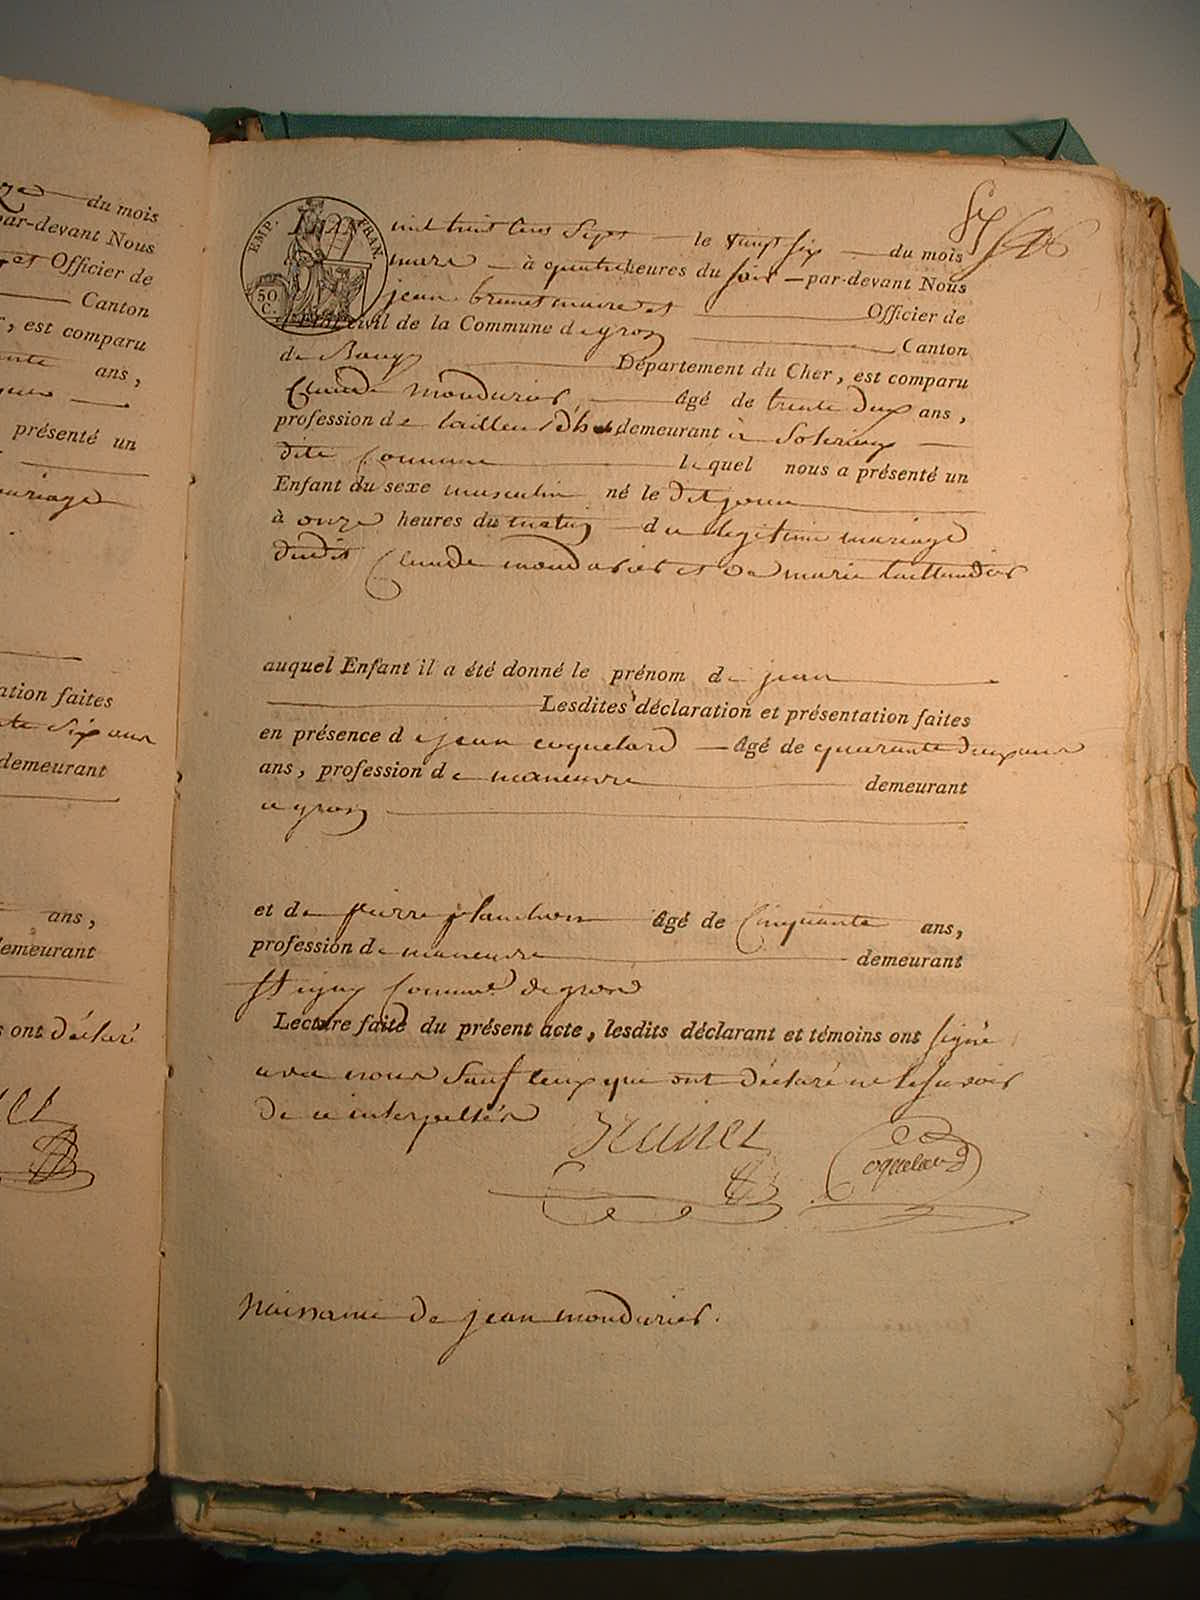 du mois
par-devant Nous
et Officier de
Canton
, est comparu
ans,
présenté un
mariage
ation faites
six ans
demeurant
ans,
demeurant
s ont déclaré
EMP. FRAN.
50 C.
L'AN mil huit cens sept le vingt six du mois
mars à quatre heures du soir par-devant Nous
jean brunet maire et Officier de
l'Etat civil de la Commune de gron Canton
de Baugy Département du Cher, est comparu
Claude mondurier Agé de trente deux ans,
profession de tailleur d'h demeurant à Solerieux
dite Commune lequel nous a présenté un
Enfant du sexe masculin né le dit jour
à onze heures du matin de legitime mariage
dudit Claude mondurier et de marie taillandier
auquel Enfant il a été donné le prénom de jean
Lesdites déclaration et présentation faites
en présence de jean coquelard Agé de quarante deux ans
ans, profession de maneuvre demeurant
a gron
et de pierre planchon Agé de Cinquante ans,
profession de maneuvre demeurant
Commune de gron
Lecture faite du présent acte, lesdits déclarant et témoins ont signé
avec nous sauf ceux qui ont déclaré ne le savoir
de ce interpellés
Brunet
Coquelard
Naissance de jean mondurier.